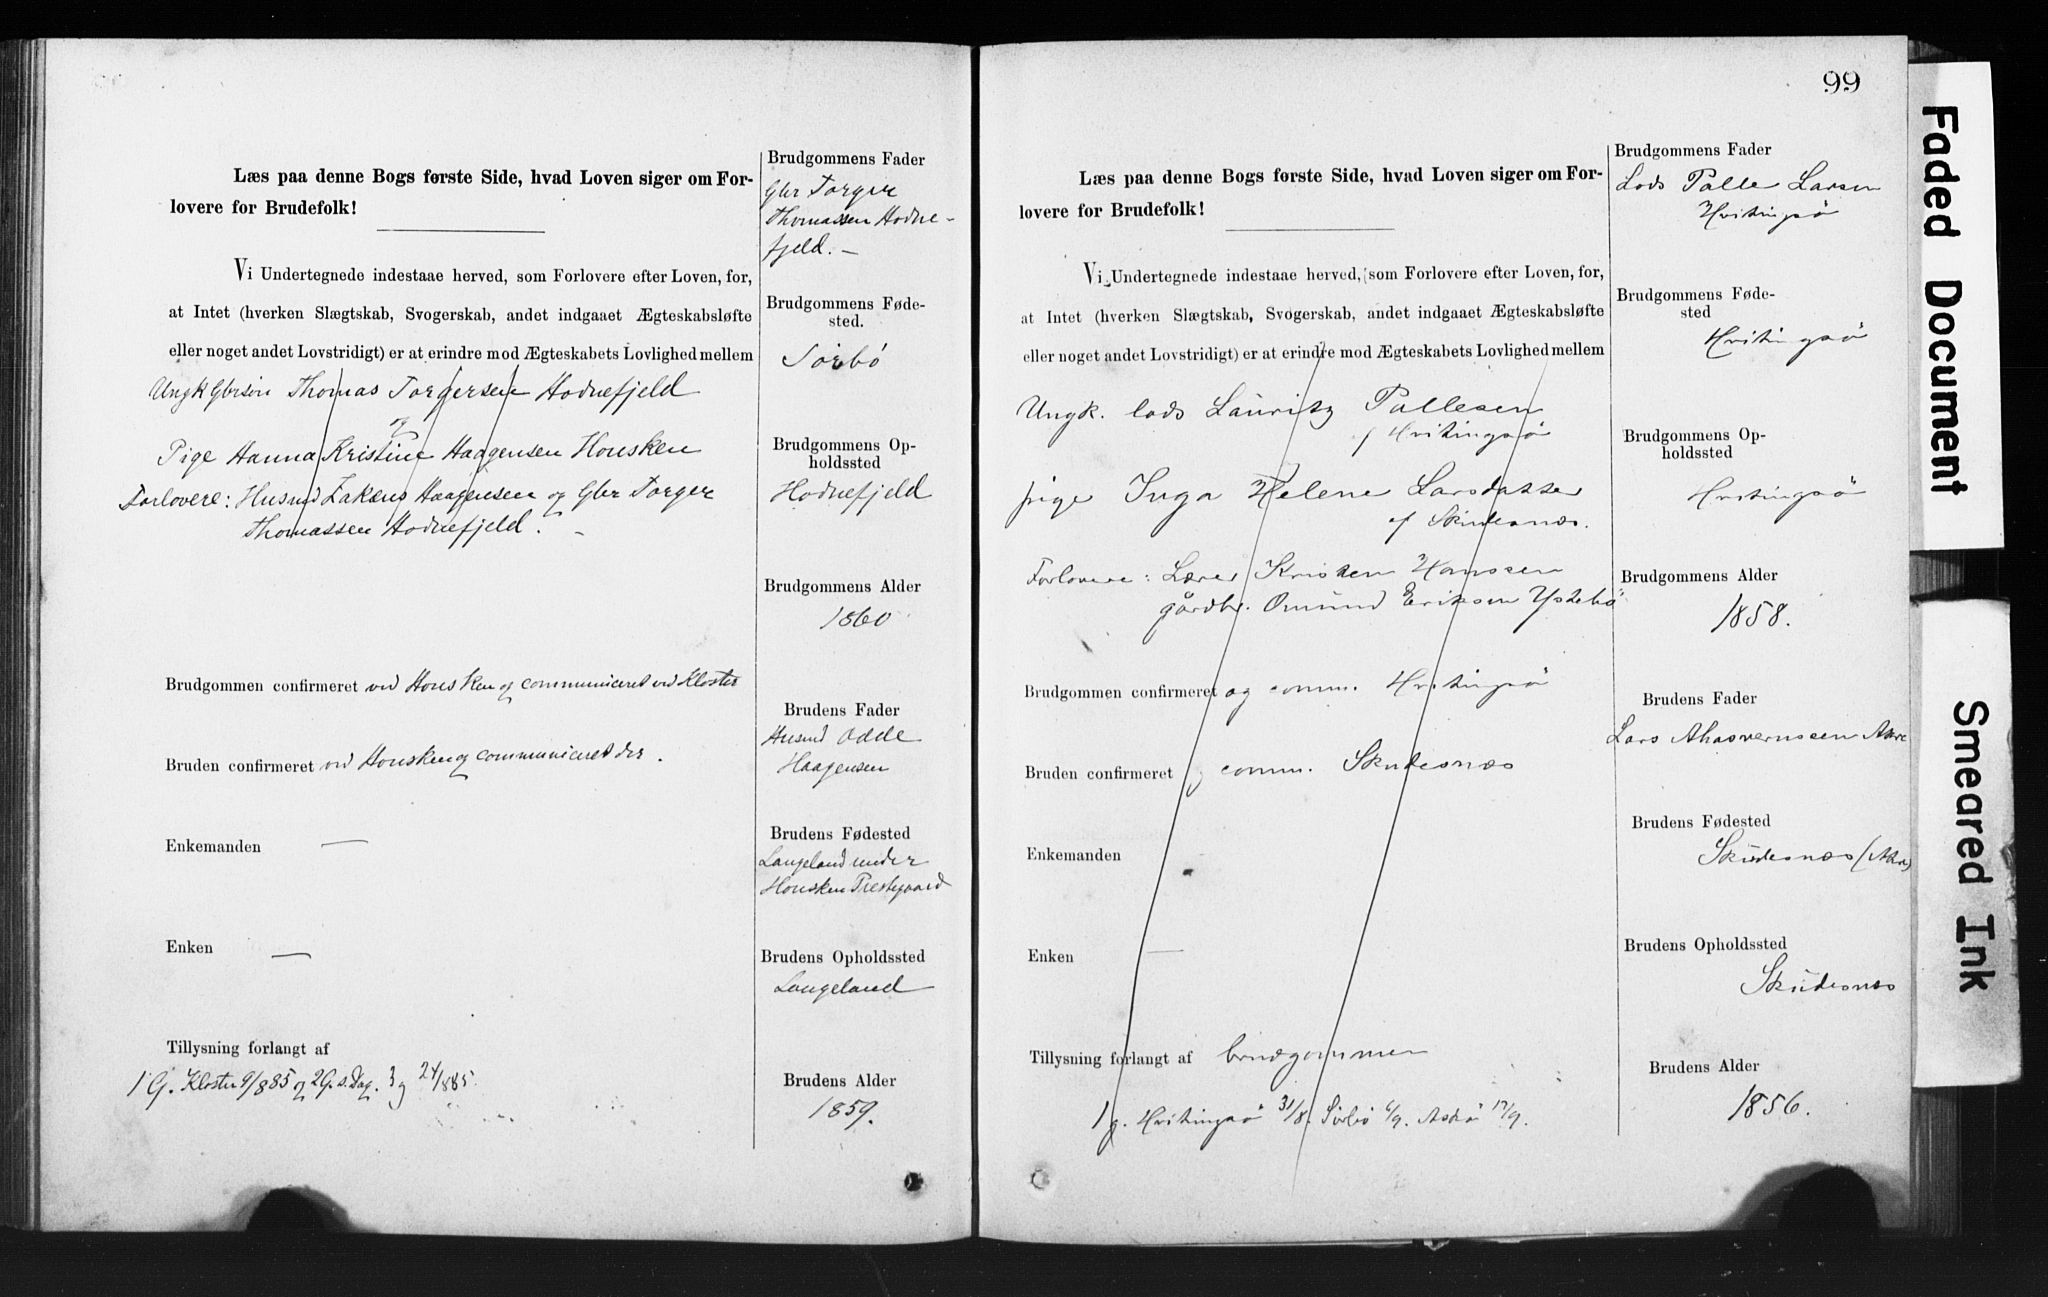 Læs paa denne Bogs første Side, hvad Loven siger om For-
lovere for Brudefolk!
Vi Undertegnede indestaae herved, som Forlovere efter Loven, for,
at Intet (hverken Slægtskab, Svogerskab, andet indgaaet Ægteskabsløfte
eller noget andet Lovstridigt) er at erindre mod Ægteskabets Lovlighed mellem
Ungk Gbrsön Thomas Torgersen Hodnefjeld
og
Pige Hanna Kristine Haagensen Housken
Forlovere: Husmd Zakens Haagensen og Gbr Torger
Thomassen Hodnefjeld. –
Brudgommen confirmeret ved Housken og communiceret ved Kloster
Bruden confirmeret ved Housken og communiceret der.
Enkemanden —
Enken —
Tillysning forlangt af
1 G. Kloster 9/885 og 2 G. s. Dag. 3 g 24/885.
Brudgommens Fader
Gbr Torger
Thomassen Hodne-
fjeld. –
Brudgommens Føde-
sted.
Sörbö
Brudgommens Op-
holdssted
Hodnefjeld
Brudgommens Alder
1860
Brudens Fader
Husmd Odde
Haagensen
Brudens Fødested
Langeland under
Housken Prestegaard
Brudens Opholdssted
Langeland
Brudens Alder
1859.
99
Læs paa denne Bogs første Side, hvad Loven siger om For-
lovere for Brudefolk!
Vi Undertegnede indestaae herved, som Forlovere efter Loven, for,
at Intet (hverken Slægtskab, Svogerskab, andet indgaaet Ægteskabsløfte
eller noget andet Lovstridigt) er at erindre mod Ægteskabets Lovlighed mellem
Ungk. lods Lauritz Pallesen
af Hvitingsö
pige Inga Helene Larsdatter
af Skudesnæs.
Forlovere: Lærer Kristen Hanssen
gårdbr. Omund Eriksen Ystebö
Brudgommen confirmeret og comm. Hvitingsö
Bruden confirmeret og comm. Skudesnæs
Enkemanden
Enken —
Tillysning forlangt af brudgommen
1 g. Hvitingsö 31/8. Sörbö 6/9. Askö 17/9.
Brudgommens Fader
Lods Palle Larsen
Hvitingsö
Brudgommens Føde-
sted
Hvitingsö
Brudgommens Op-
holdssted
Hvitingsö
Brudgommens Alder
1858.
Brudens Fader
Lars Ahasverussen Akre
Brudens Fødested
Skudesnæs (Akre)
Brudens Opholdssted
Skudesnæs
Brudens Alder
1856.
Faded Document
Smeared Ink